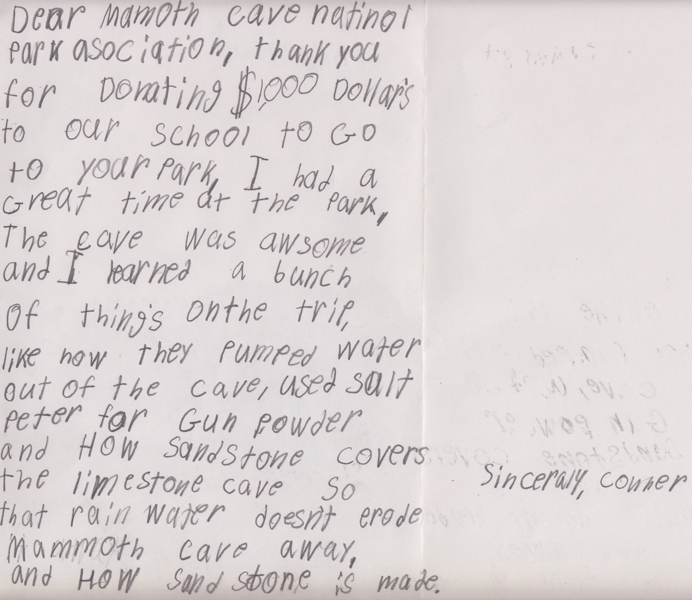 Dear Mamoth cave natinol
Park asociation, thank you
for Donating $1,000 Dollars
to our school to Go
to your Park, I had a
Great time at the Park,
The cave was awsome
and I learned a bunch
Of thing's On the trip,
like how they Pumped water
out of the cave, used salt
peter for Gun powder
and HOW Sandstone covers
the limestone cave so
that rain water doesn't erode
Mammoth cave away,
and HOW Sand stone is made.
Sinceraly, conner